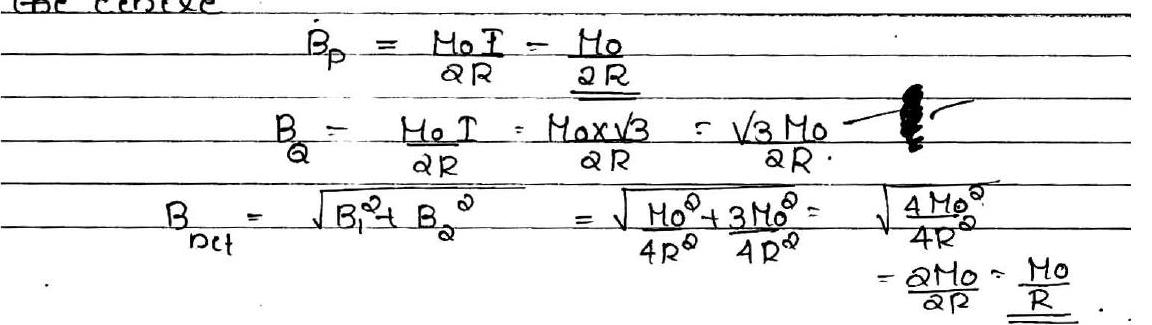 the centre
B_P = μ₀ I / 2R = μ₀ / 2R
B_Q = μ₀ I / 2R = μ₀ x √3 / 2R = √3 μ₀ / 2R.
B_net = √(B₁² + B₂²) = √(μ₀² / 4R² + 3μ₀² / 4R²) = √(4μ₀² / 4R²)
= 2μ₀ / 2R = μ₀ / R.